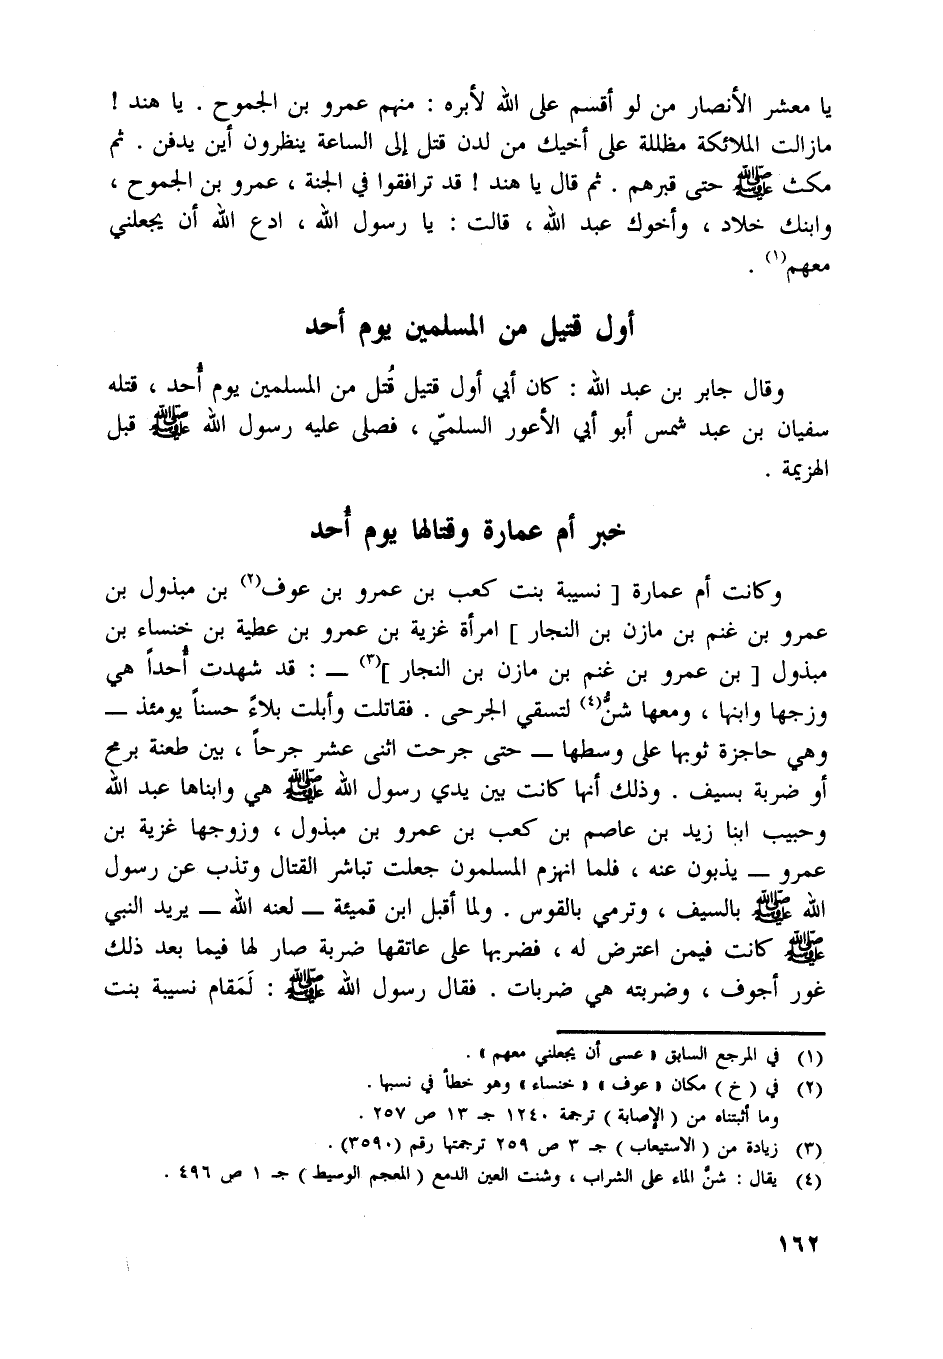 يا معشر الأنصار من لو أقسم على الله لأبره : منهم عمرو بن الجموح . يا هند !
مازالت الملائكة مظللة على أخيك من لدن قتل إلى الساعة ينظرون أين يدفن . ثم
مكث ﷺ حتى قبرهم . ثم قال يا هند ! قد ترافقوا في الجنة ، عمرو بن الجموح ،
وابنك خلاد ، وأخوك عبد الله ، قالت : يا رسول الله ، ادع الله أن يجعلني
معهم(١) .
أول قتيل من المسلمين يوم أحد
وقال جابر بن عبد الله : كان أبي أول قتيل قُتل من المسلمين يوم أُحد ، قتله
سفيان بن عبد شمس أبو أبي الأعور السلميّ ، فصلى عليه رسول الله ﷺ قبل
الهزيمة .
خبر أم عمارة وقتالها يوم أُحد
وكانت أم عمارة [ نسيبة بنت كعب بن عمرو بن عوف(٢) بن مبذول بن
عمرو بن غنم بن مازن بن النجار ] امرأة غزية بن عمرو بن عطية بن خنساء بن
مبذول [ بن عمرو بن غنم بن مازن بن النجار ](٣) ــ : قد شهدت أُحداً هي
وزجها وابنها ، ومعها شنٌّ(٤) لتسقي الجرحى . فقاتلت وأبلت بلاءً حسناً يومئذ ــ
وهي حاجزة ثوبها على وسطها ــ حتى جرحت اثنى عشر جرحاً ، بين طعنة برمح
أو ضربة بسيف . وذلك أنها كانت بين يدي رسول الله ﷺ هي وابناها عبد الله
وحبيب ابنا زيد بن عاصم بن كعب بن عمرو بن مبذول ، وزوجها غزية بن
عمرو ــ يذبون عنه ، فلما انهزم المسلمون جعلت تباشر القتال وتذب عن رسول
الله ﷺ بالسيف ، وترمي بالقوس . ولما أقبل ابن قميئة ــ لعنه الله ــ يريد النبي
ﷺ كانت فيمن اعترض له ، فضربها على عاتقها ضربة صار لها فيما بعد ذلك
غور أجوف ، وضربته هي ضربات . فقال رسول الله ﷺ : لَمَقام نسيبة بنت
(١) في المرجع السابق « عسى أن يجعلني معهم » .
(٢) في ( خ ) مكان « عوف » « خنساء » وهو خطأ في نسبها .
وما أثبتناه من ( الإصابة ) ترجمة ١٢٤٠ جـ ١٣ ص ٢٥٧ .
(٣) زيادة من ( الاستيعاب ) جـ ٣ ص ٢٥٩ ترجمتها رقم (٣٥٩٠) .
(٤) يقال : شنَّ الماء على الشراب ، وشنت العين الدمع ( المعجم الوسيط ) جـ ١ ص ٤٩٦ .
١٦٢